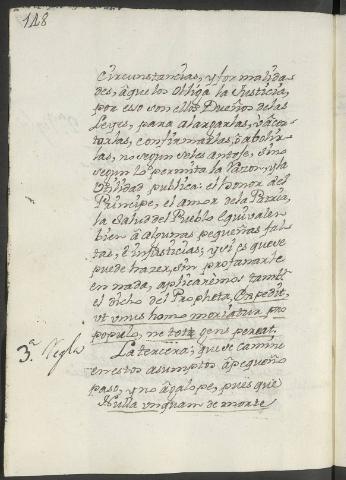 148
circunstancias, y formalida-
des, à que los obliga la Justicia,
por eso son ellos Dueños de las
Leyes, para alargarlas, vàcor-
tarlas, confirmarlas, ò abolir-
las, no segun seles antoje, sino
segun lo permita la Razon, y la
Utilidad publica: el honor del
Principe, el amor dela Patria,
la Salud del Pueblo Equivalen
bien à algunas pequeñas fal-
tas, è injusticias; y si es que se
puede hazer, sin profanarse
en nada, aplicarèmos tambn
el dicho del Propheta, Expedit,
ut unus homo moriatur pro
populo, ne tota gens pereat.
3.ª Regla
La tercera; que se camine
en estos asumptos à pequeño
paso, y no à galope, pues que
Nulla unquam de morte